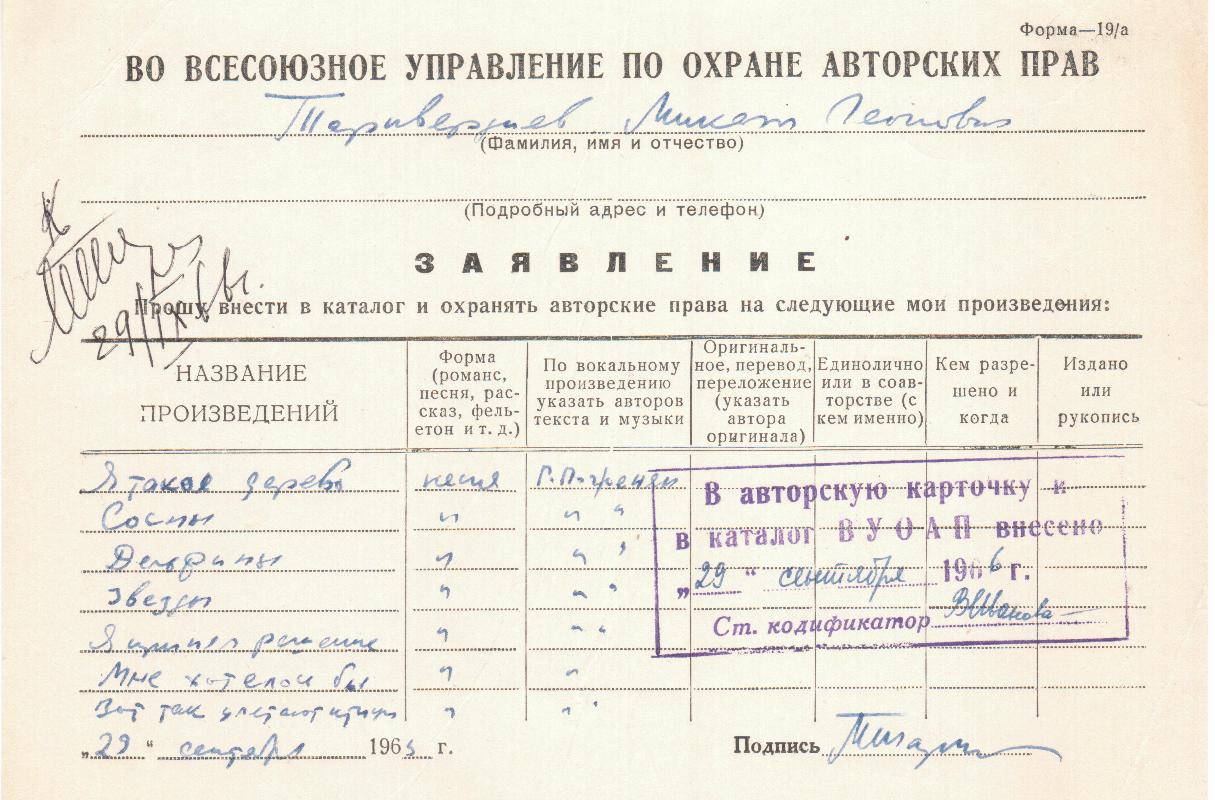 Форма—19/а
ВО ВСЕСОЮЗНОЕ УПРАВЛЕНИЕ ПО ОХРАНЕ АВТОРСКИХ ПРАВ
Таривердиев Микаэл Леонович
(Фамилия, имя и отчество)
(Подробный адрес и телефон)
ЗАЯВЛЕНИЕ
29/IX
Прошу внести в каталог и охранять авторские права на следующие мои произведения:
НАЗВАНИЕ ПРОИЗВЕДЕНИЙ
Форма (романс, песня, рассказ, фельетон и т. д.)
По вокальному произведению указать авторов текста и музыки
Оригинальное, перевод, переложение (указать автора оригинала)
Единолично или в соавторстве (с кем именно)
Кем разрешено и когда
Издано или рукопись
Я такое дерево песня Г. Поженян
Сосны " " "
Дельфины " " "
Звезды " " "
Я принял решение " " "
Мне хотелось бы " "
Вот так улетают птицы " " "
В авторскую карточку и
в каталог ВУОАП внесено
„29“ сентября 1966 г.
Ст. кодификатор ВИванова
„29“ сентября 196 г.
Подпись